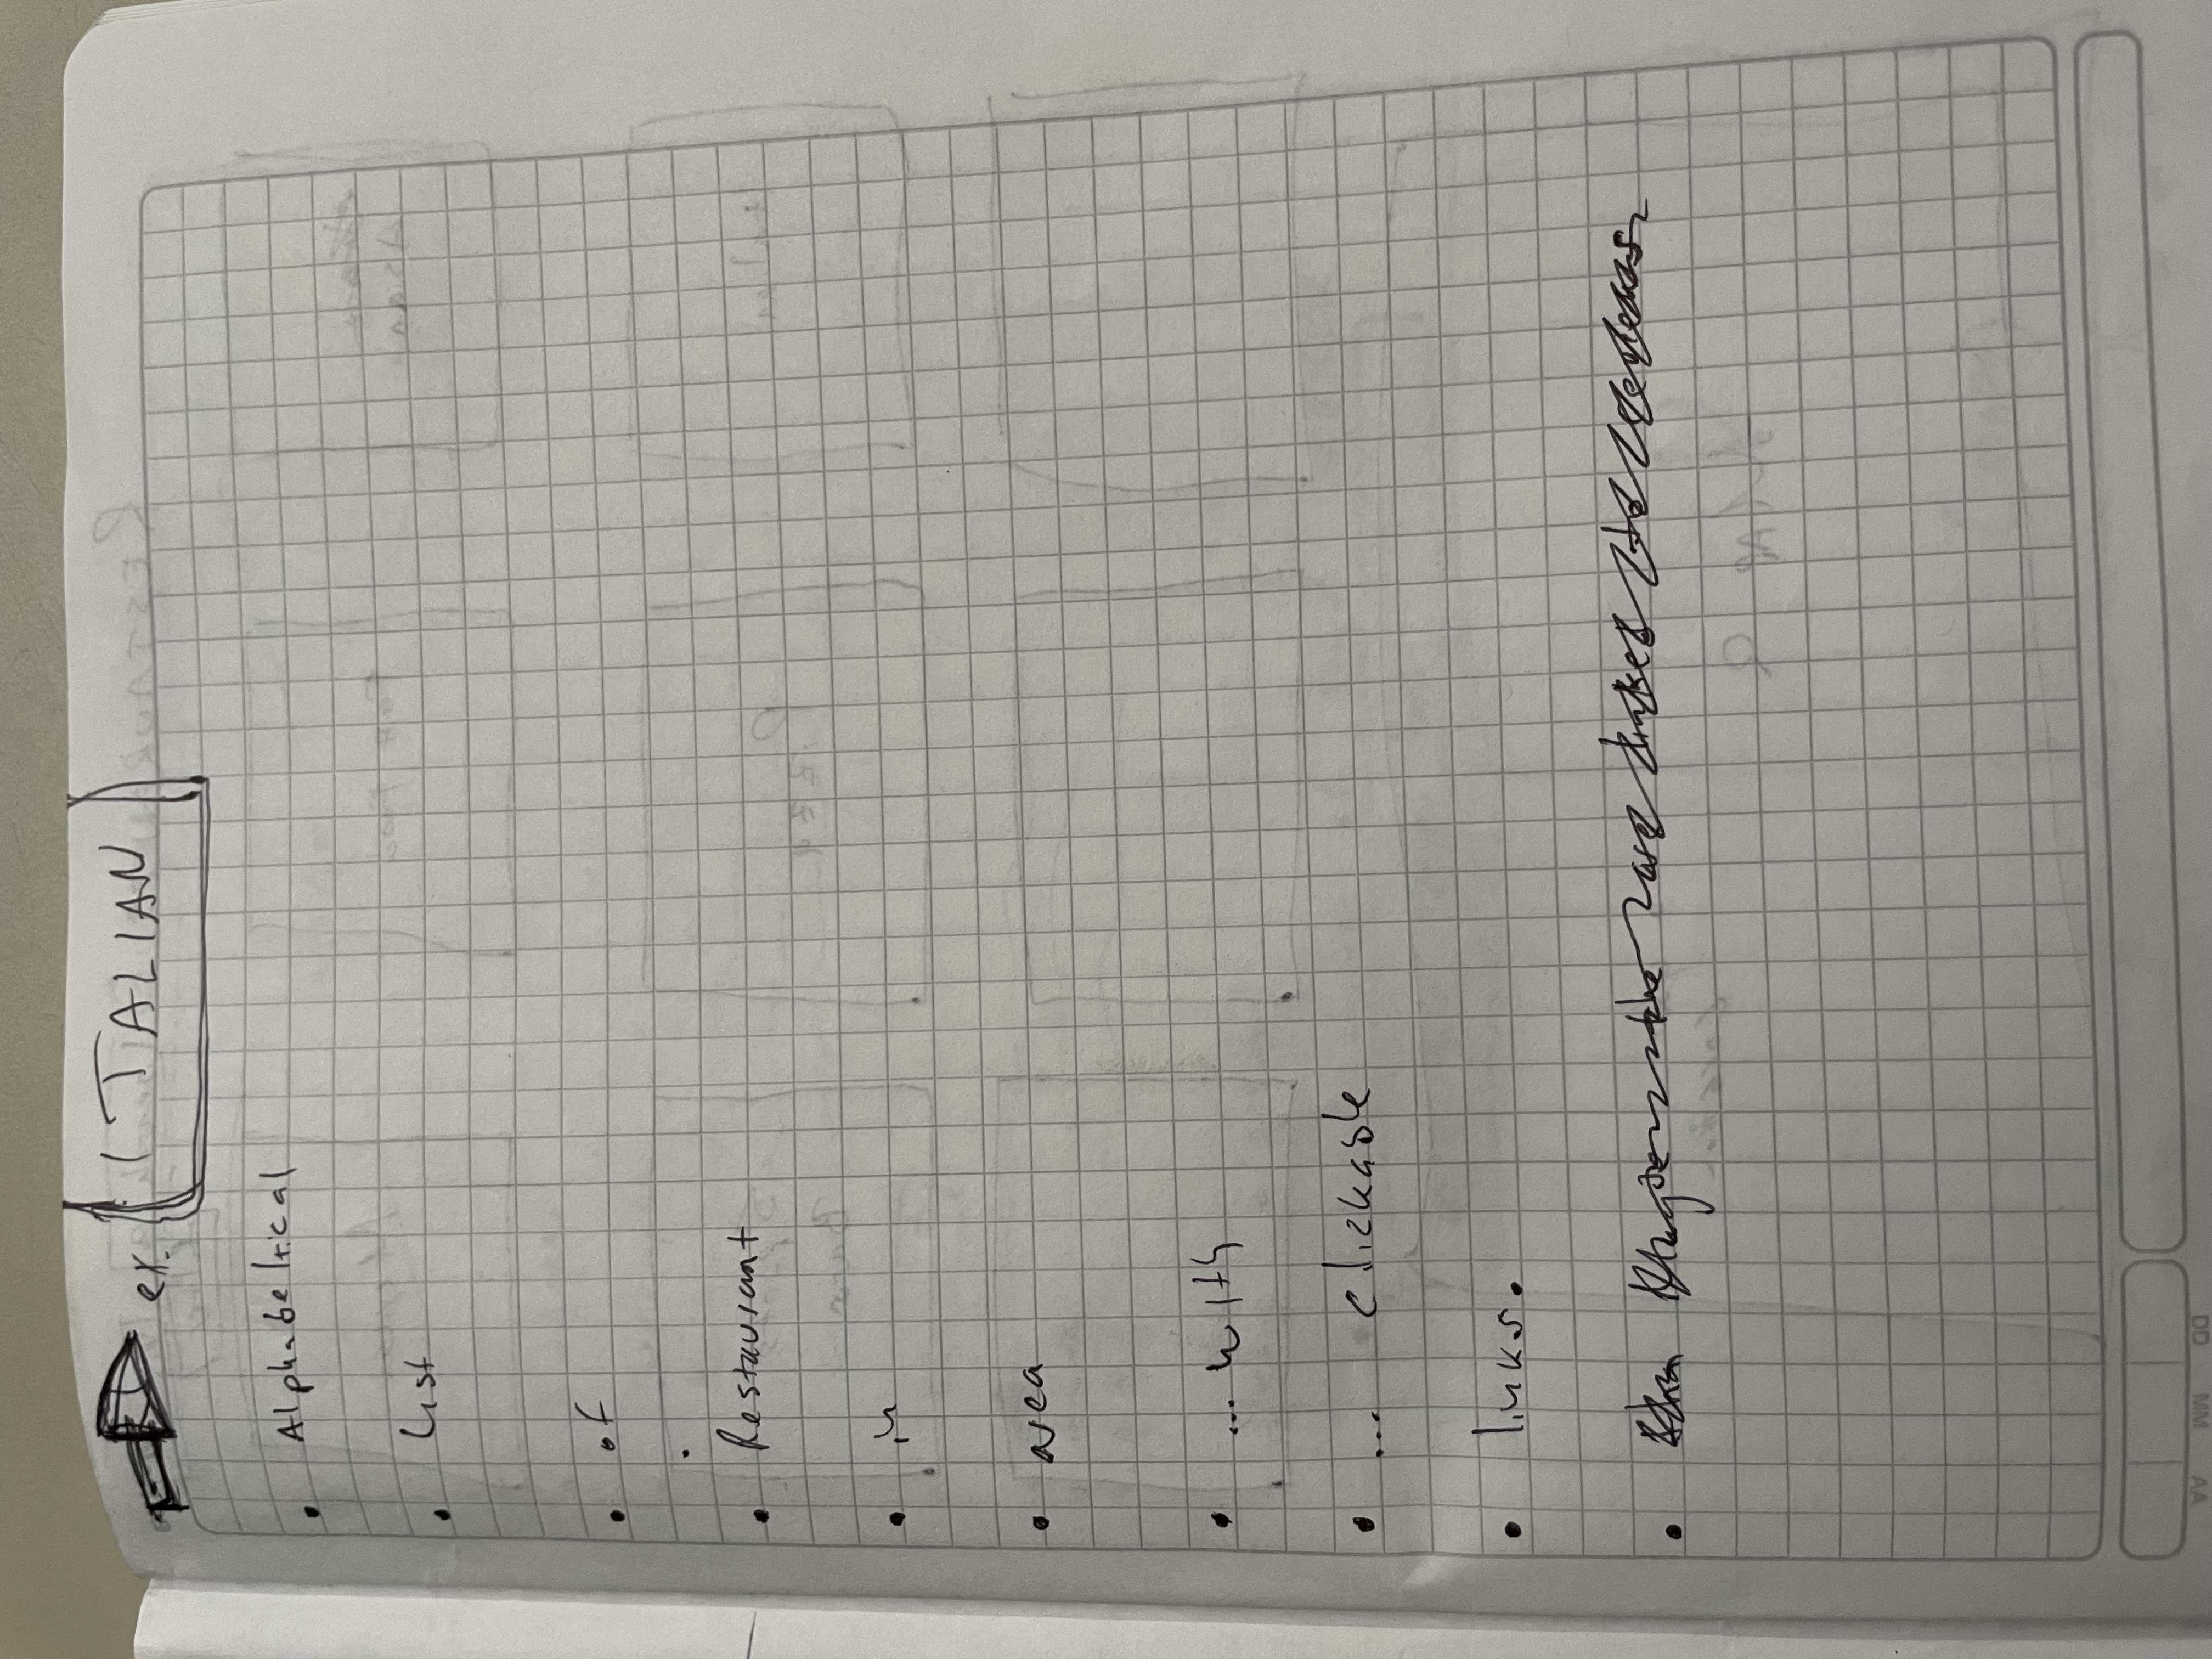 ex. ITALIAN
• Alphabeltical
• List
• of
• Restaurant
• in
• area
• ... with
• ... clickable
• links.
•